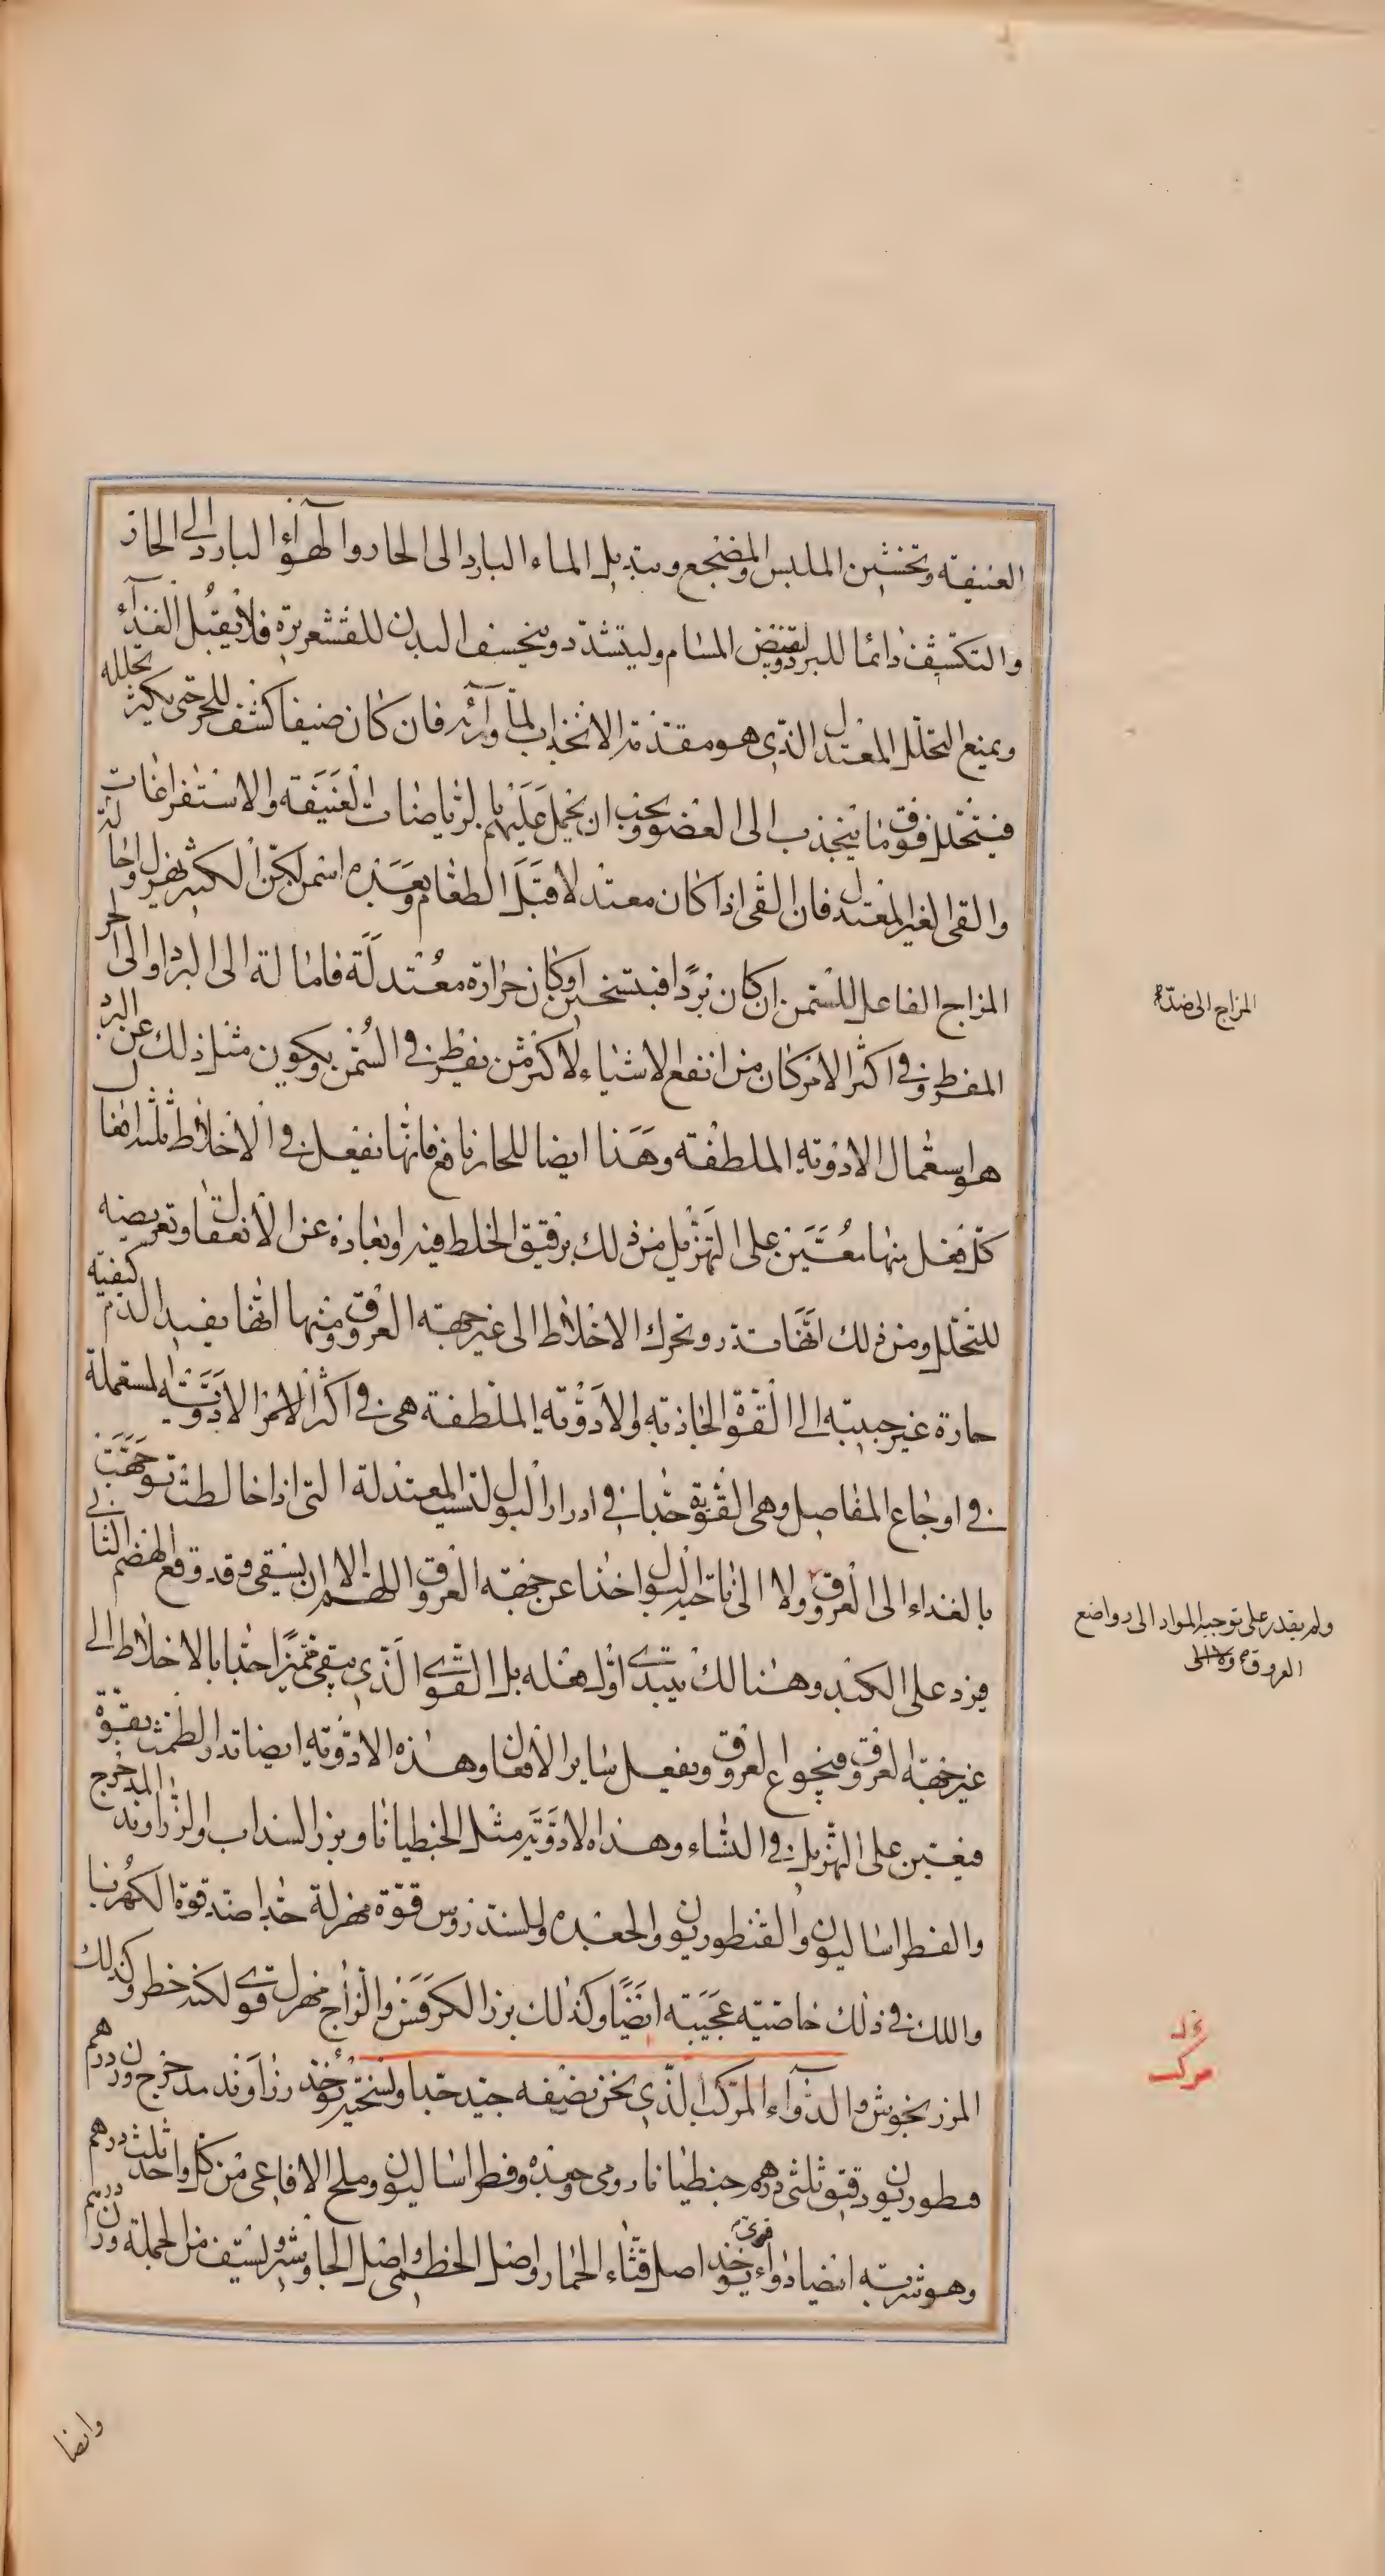 العنيفة وتخشين الملبس والمضجع وبتبديل الماء البارد الى الحار والهواء البارد الى الحار
والتكشف دائما للبرد لتقبض المسام وليتشدد وينخسف البدن للقشعريرة فلا يقبل الغذاء
ويمنع التحلل المعتدل الذى هو مقدمة الانجذاب لما وراءه فان كان صيفا كشف للحر حتى يكثر تحلله
فيتحلل فوق ما ينجذب الى العضو ويجب ان يحمل عليهم بالرياضات العنيفة والاستفراغات
والقى الغير المعتدل فان القى اذا كان معتدلا قبل الطعام وبعيده اسمن لكن الكثير يهزل واحالة
المزاج الفاعل للسمن ان كان بردا فبتسخين او كان حرارة معتدلة فامالة الى البرد او الى الحر
المفرط وفى اكثر الامر كان من انفع الاشياء لاكثر من يفرط فى السمن ويكون مثل ذلك عن البرد
هو استعمال الادوية الملطفة وهذا ايضا للحار نافع فانها تفعل فى الاخلاط ثلثة افعال
كل فعل منها معين على التهزيل من ذلك ترقيق الخلط فيه وابعاده عن الانعقاد وتعريضه
للتحلل ومن ذلك انها تدر وتحرك الاخلاط الى غير جهة العروق ومنها انها تفيد الدم كيفية
حارة غير حبيبة الى القوة الجاذبة والادوية الملطفة هى فى اكثر الامر الادوية المستعملة
فى اوجاع المفاصل وهى القوية جدا فى ادرار البول ليست المعتدلة التى اذا خالطت توجهت
بالغذاء الى العروق ولا الى ناحية البول اخذا عن جهة العروق اللهم الا ان يسقى وقد وقع الهضم الثانى
فيرد على الكبد وهنالك يبتدى اول فعله بل القوى الذى يبقى متميزا جدا بالاخلاط الى
غير جهة العروق فيجوع العروق ويفعل ساير الافعال وهذه الادوية ايضا تدر الطمث بقوة
فيعين على التهزيل فى النساء وهذه الادوية مثل الجنطيانا وبزر السذاب والزراوند المدحرج
والفطراساليون والقنطوريون والجعدة وللسندروس قوة مهزلة جدا ضد قوة الكهربا
واللك فى ذلك خاصية عجيبة ايضا وكذلك بزر الكرفس والزاج مهزل قوى لكنه خطر وكذلك
المرزنجوش والدواء المركب الذى نحن نصفه جيد جدا ونسخته يؤخذ زراوند مدحرج وزن درهم
قنطوريون دقيق ثلثى درهم جنطيانا رومى وجعدة وفطراساليون وملح الافاعى من كل واحد ثلث درهم
وهو شربة ايضا دواء قوى يوخذ اصل قثاء الحمار واصل الخطمى واصل الجاوشير ويستف من الجملة وزن درهم
المزاج الى ضده
ولم يقدر على توجيه المواد الى رواضع
العروق
مركب
وايضا